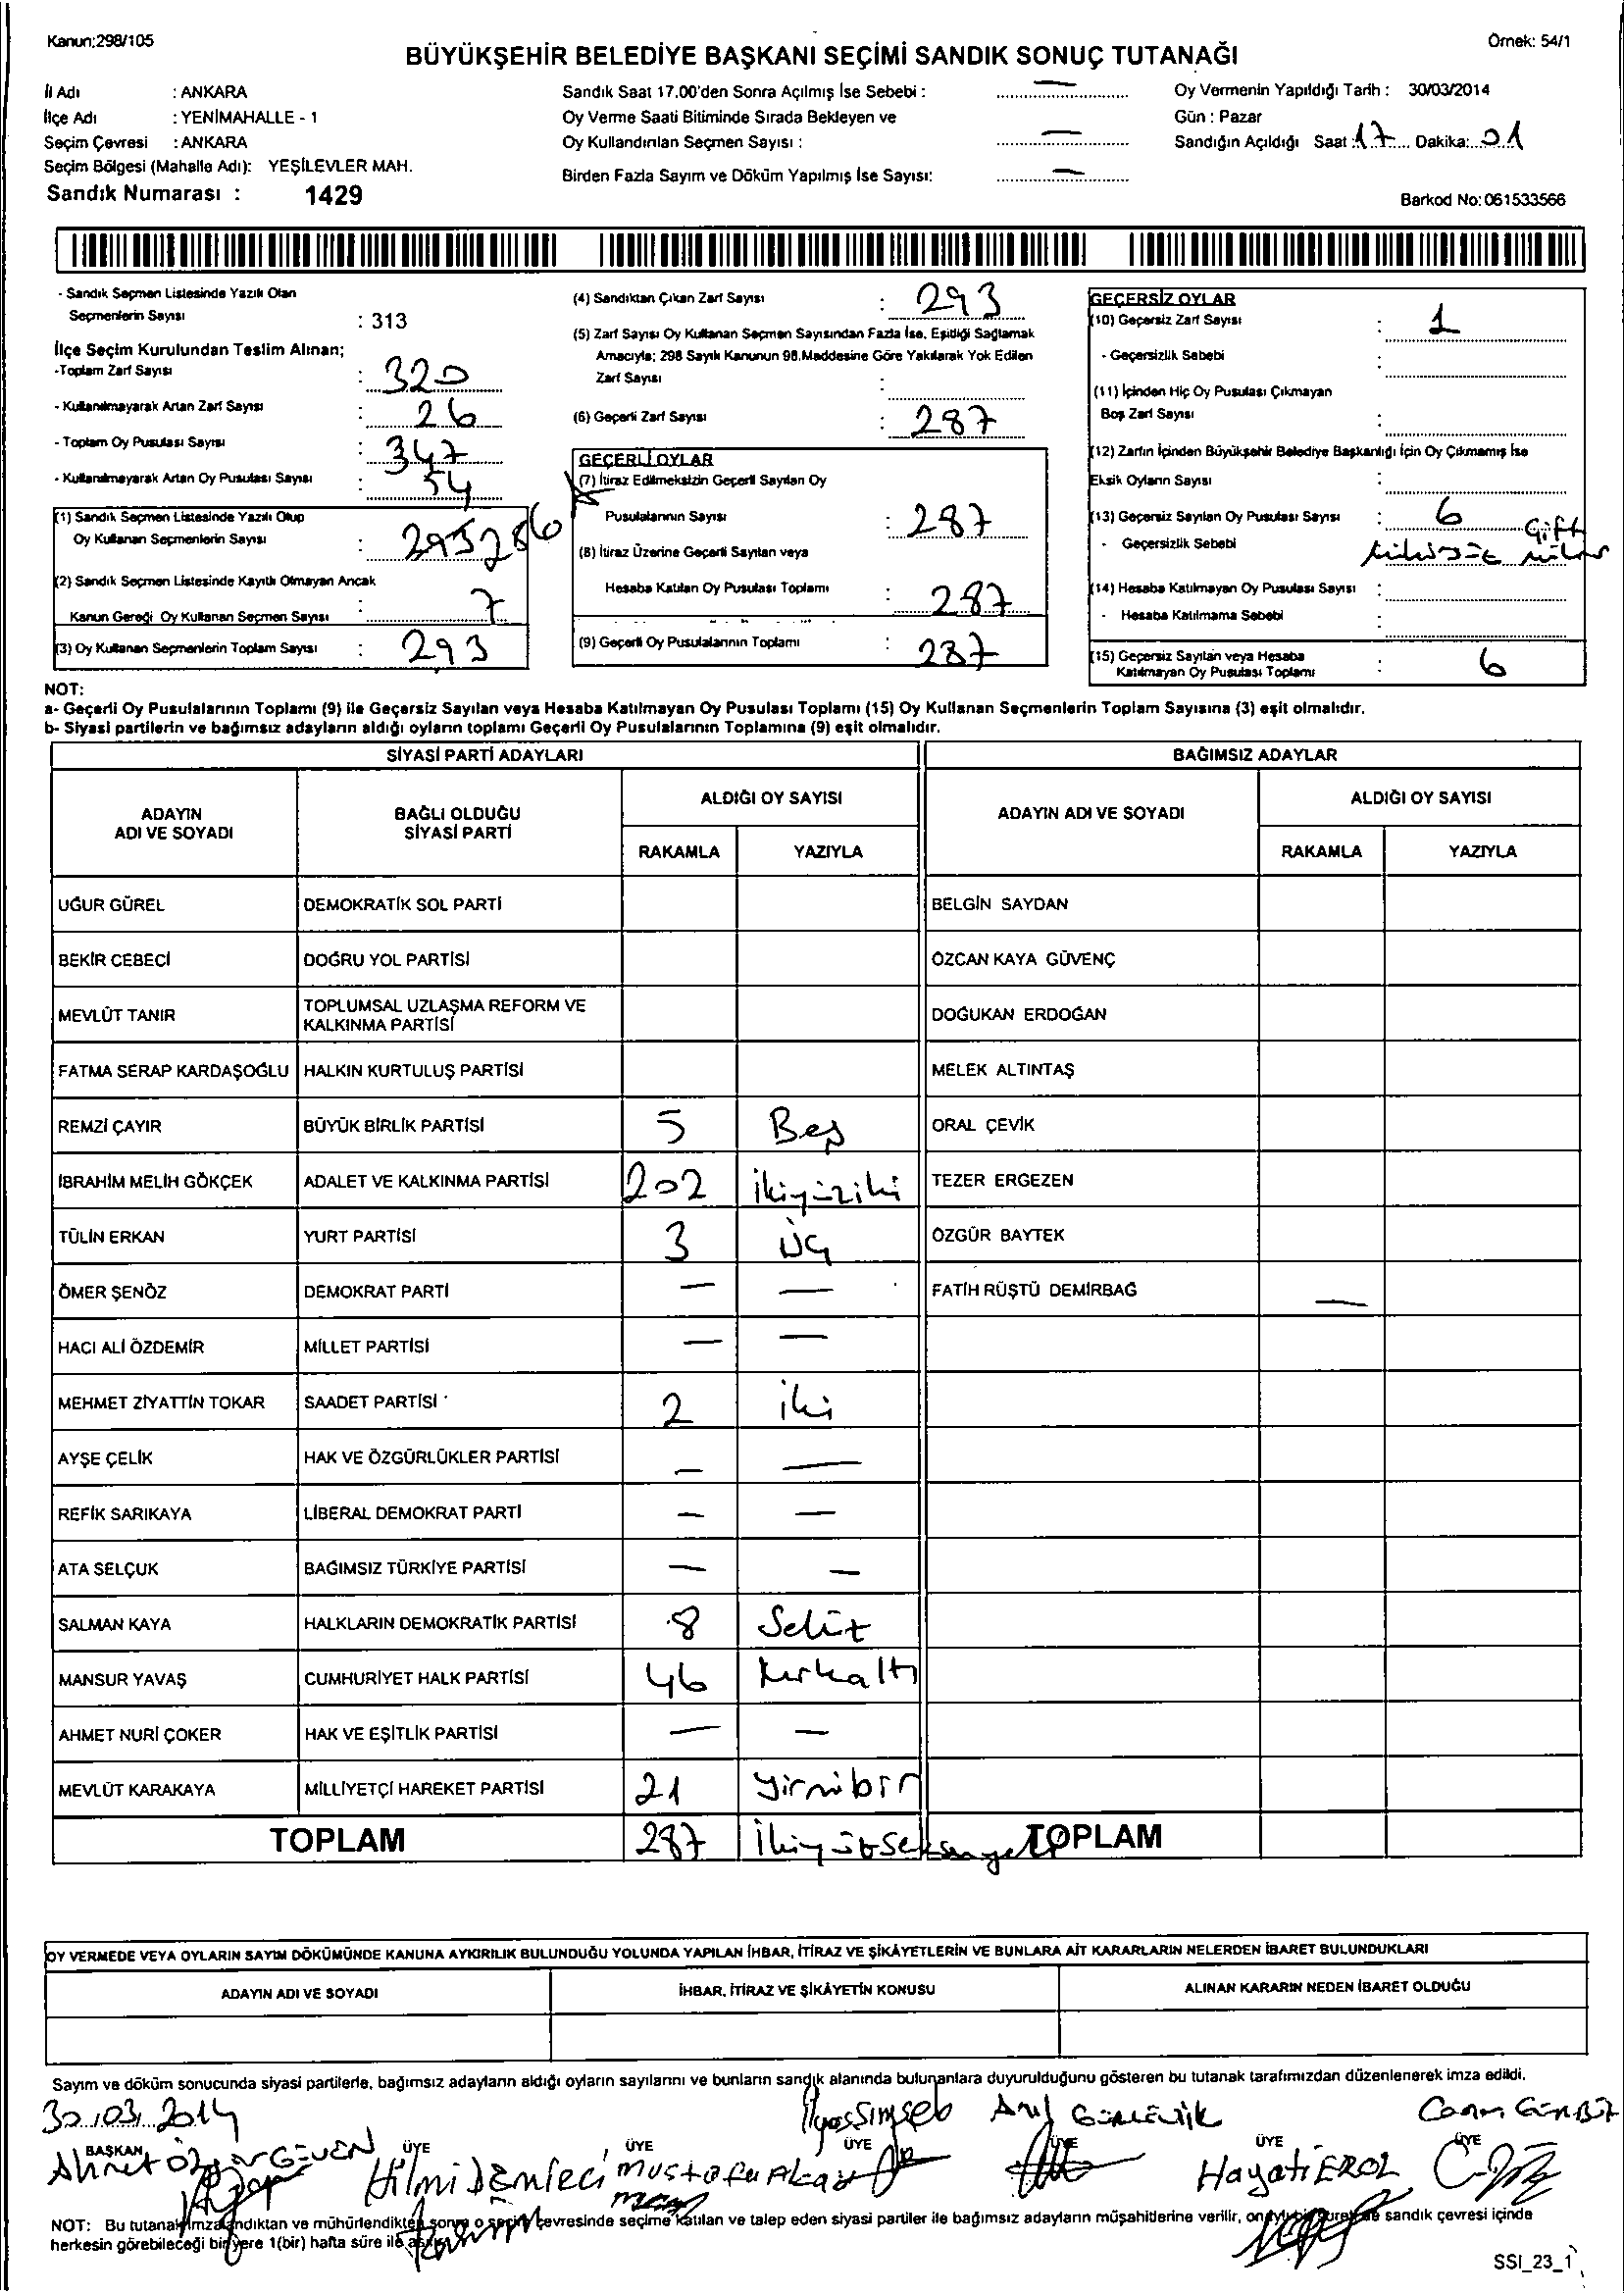 Kanun:298/105
Örnek: 54/1
BÜYÜKŞEHİR BELEDİYE BAŞKANI SEÇİMİ SANDIK SONUÇ TUTANAĞI
İl Adı : ANKARA
İlçe Adı : YENİMAHALLE - 1
Seçim Çevresi : ANKARA
Seçim Bölgesi (Mahalle Adı): YEŞİLEVLER MAH.
Sandık Numarası : 1429
Sandık Saat 17.00'den Sonra Açılmış İse Sebebi : —
Oy Verme Saati Bitiminde Sırada Bekleyen ve
Oy Kullandırılan Seçmen Sayısı : —
Birden Fazla Sayım ve Döküm Yapılmış İse Sayısı: —
Oy Vermenin Yapıldığı Tarih : 30/03/2014
Gün : Pazar
Sandığın Açıldığı Saat : 17 Dakika: 01
Barkod No: 061533566
- Sandık Seçmen Listesinde Yazılı Olan
Seçmenlerin Sayısı : 313
İlçe Seçim Kurulundan Teslim Alınan;
-Toplam Zarf Sayısı : 320
- Kullanılmayarak Artan Zarf Sayısı : 26
- Toplam Oy Pusulası Sayısı : 347
- Kullanılmayarak Artan Oy Pusulası Sayısı : 54
(1) Sandık Seçmen Listesinde Yazılı Olup
Oy Kullanan Seçmenlerin Sayısı : 293 286
(2) Sandık Seçmen Listesinde Kayıtlı Olmayan Ancak
Kanun Gereği Oy Kullanan Seçmen Sayısı : 7
(3) Oy Kullanan Seçmenlerin Toplam Sayısı : 293
(4) Sandıktan Çıkan Zarf Sayısı : 293
(5) Zarf Sayısı Oy Kullanan Seçmen Sayısından Fazla İse, Eşitliği Sağlamak
Amacıyla; 298 Sayılı Kanunun 98.Maddesine Göre Yakılarak Yok Edilen
Zarf Sayısı :
(6) Geçerli Zarf Sayısı : 287
GEÇERLİ OYLAR
(7) İtiraz Edilmeksizin Geçerli Sayılan Oy
Pusulalarının Sayısı : 287
(8) İtiraz Üzerine Geçerli Sayılan veya
Hesaba Katılan Oy Pusulası Toplamı : 287
(9) Geçerli Oy Pusulalarının Toplamı : 287
GEÇERSİZ OYLAR
(10) Geçersiz Zarf Sayısı : 1
- Geçersizlik Sebebi :
(11) İçinden Hiç Oy Pusulası Çıkmayan
Boş Zarf Sayısı :
(12) Zarfın İçinden Büyükşehir Belediye Başkanlığı İçin Oy Çıkmamış İse
Eksik Oyların Sayısı :
(13) Geçersiz Sayılan Oy Pusulası Sayısı : 6
- Geçersizlik Sebebi : Çift
(14) Hesaba Katılmayan Oy Pusulası Sayısı :
- Hesaba Katılmama Sebebi :
(15) Geçersiz Sayılan veya Hesaba
Katılmayan Oy Pusulası Toplamı : 6
NOT:
a- Geçerli Oy Pusulalarının Toplamı (9) ile Geçersiz Sayılan veya Hesaba Katılmayan Oy Pusulası Toplamı (15) Oy Kullanan Seçmenlerin Toplam Sayısına (3) eşit olmalıdır.
b- Siyasi partilerin ve bağımsız adayların aldığı oyların toplamı Geçerli Oy Pusulalarının Toplamına (9) eşit olmalıdır.
SİYASİ PARTİ ADAYLARI BAĞIMSIZ ADAYLAR
ADAYIN
ADI VE SOYADI
BAĞLI OLDUĞU
SİYASİ PARTİ
ALDIĞI OY SAYISI
RAKAMLA YAZIYLA
ADAYIN ADI VE SOYADI
ALDIĞI OY SAYISI
RAKAMLA YAZIYLA
UĞUR GÜREL DEMOKRATİK SOL PARTİ BELGİN SAYDAN
BEKİR CEBECİ DOĞRU YOL PARTİSİ ÖZCAN KAYA GÜVENÇ
MEVLÜT TANIR TOPLUMSAL UZLAŞMA REFORM VE
KALKINMA PARTİSİ DOĞUKAN ERDOĞAN
FATMA SERAP KARDAŞOĞLU HALKIN KURTULUŞ PARTİSİ MELEK ALTINTAŞ
REMZİ ÇAYIR BÜYÜK BİRLİK PARTİSİ 5 Beş ORAL ÇEVİK
İBRAHİM MELİH GÖKÇEK ADALET VE KALKINMA PARTİSİ 202 ikiyüziki TEZER ERGEZEN
TÜLİN ERKAN YURT PARTİSİ 3 üç ÖZGÜR BAYTEK
ÖMER ŞENÖZ DEMOKRAT PARTİ — — FATİH RÜŞTÜ DEMİRBAĞ —
HACI ALİ ÖZDEMİR MİLLET PARTİSİ — —
MEHMET ZİYATTİN TOKAR SAADET PARTİSİ 2 iki
AYŞE ÇELİK HAK VE ÖZGÜRLÜKLER PARTİSİ — —
REFİK SARIKAYA LİBERAL DEMOKRAT PARTİ — —
ATA SELÇUK BAĞIMSIZ TÜRKİYE PARTİSİ — —
SALMAN KAYA HALKLARIN DEMOKRATİK PARTİSİ 8 Sekiz
MANSUR YAVAŞ CUMHURİYET HALK PARTİSİ 46 kırkaltı
AHMET NURİ ÇOKER HAK VE EŞİTLİK PARTİSİ — —
MEVLÜT KARAKAYA MİLLİYETÇİ HAREKET PARTİSİ 21 yirmibir
TOPLAM 287 İkiyüzseksenyedi TOPLAM
OY VERMEDE VEYA OYLARIN SAYIM DÖKÜMÜNDE KANUNA AYKIRILIK BULUNDUĞU YOLUNDA YAPILAN İHBAR, İTİRAZ VE ŞİKÂYETLERİN VE BUNLARA AİT KARARLARIN NELERDEN İBARET BULUNDUKLARI
ADAYIN ADI VE SOYADI İHBAR, İTİRAZ VE ŞİKÂYETİN KONUSU ALINAN KARARIN NEDEN İBARET OLDUĞU
Sayım ve döküm sonucunda siyasi partilerle, bağımsız adayların aldığı oyların sayılarını ve bunların sandık alanında bulunanlara duyurulduğunu gösteren bu tutanak tarafımızdan düzenlenerek imza edildi.
30.03.2014 İlyas Şimşek
BAŞKAN ÜYE ÜYE ÜYE ÜYE ÜYE ÜYE
Ahmet Özgür GÜVEN Hilmi Demirci Mustafa Akay Hayati EROL
NOT: Bu tutanak imzalandıktan ve mühürlendikten sonra o seçim çevresinde seçime katılan ve talep eden siyasi partiler ile bağımsız adayların müşahitlerine verilir, sandık çevresi içinde
herkesin görebileceği bir yere 1(bir) hafta süre ile
SSI_23_1